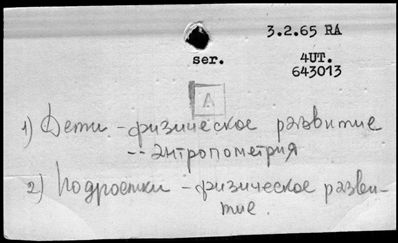 3.2.65 RA
ser.
4UT.
643013
A
1) Дети - физическое развитие
-- антропометрия
2) Подростки - физическое разви-
тие.